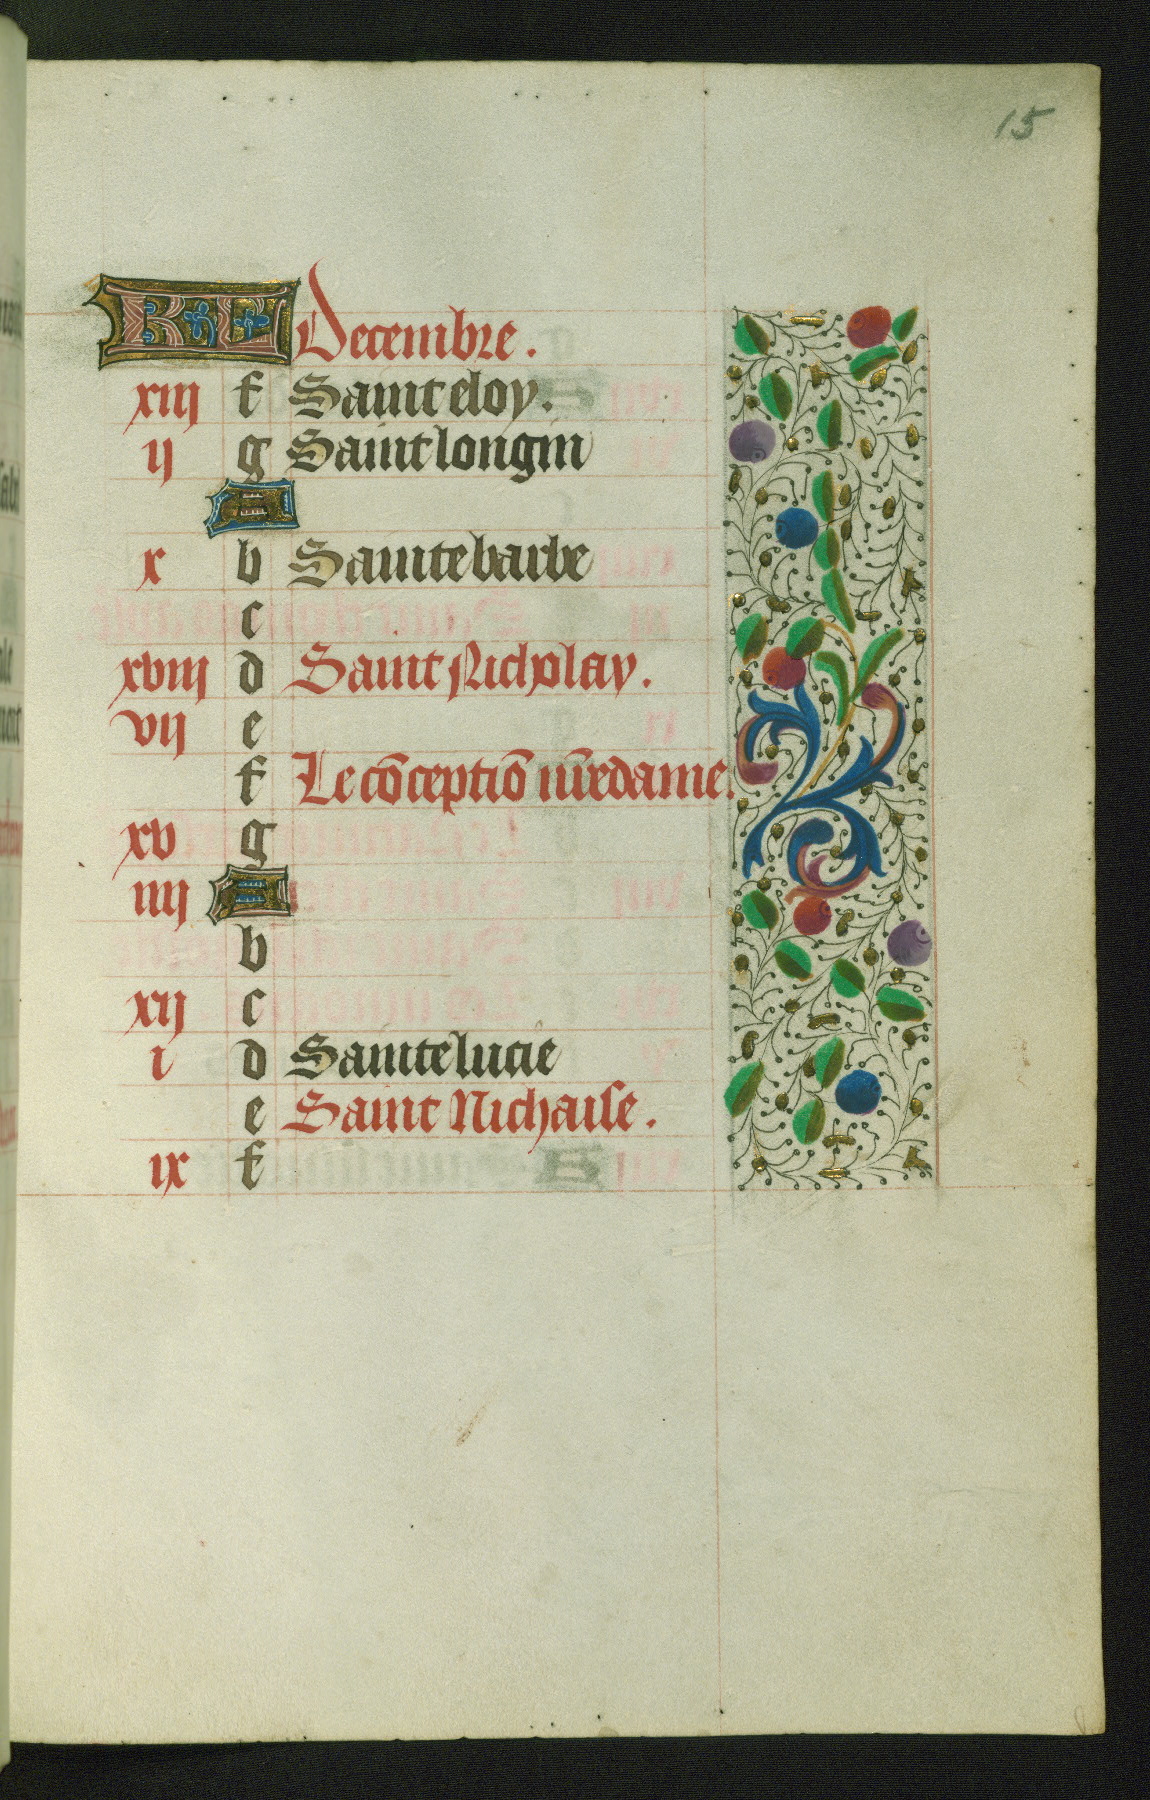 15
KL Decembre.
xiij f Saint eloy.
ij g Saint longin
A
x b Sainte barbe
c
xviij d Saint Nicholay.
vij e
f Le cōceptiō nr̄e dame.
xv g
iiij A
b
xij c
i d Sainte lucie
e Saint Nichaise.
ix f